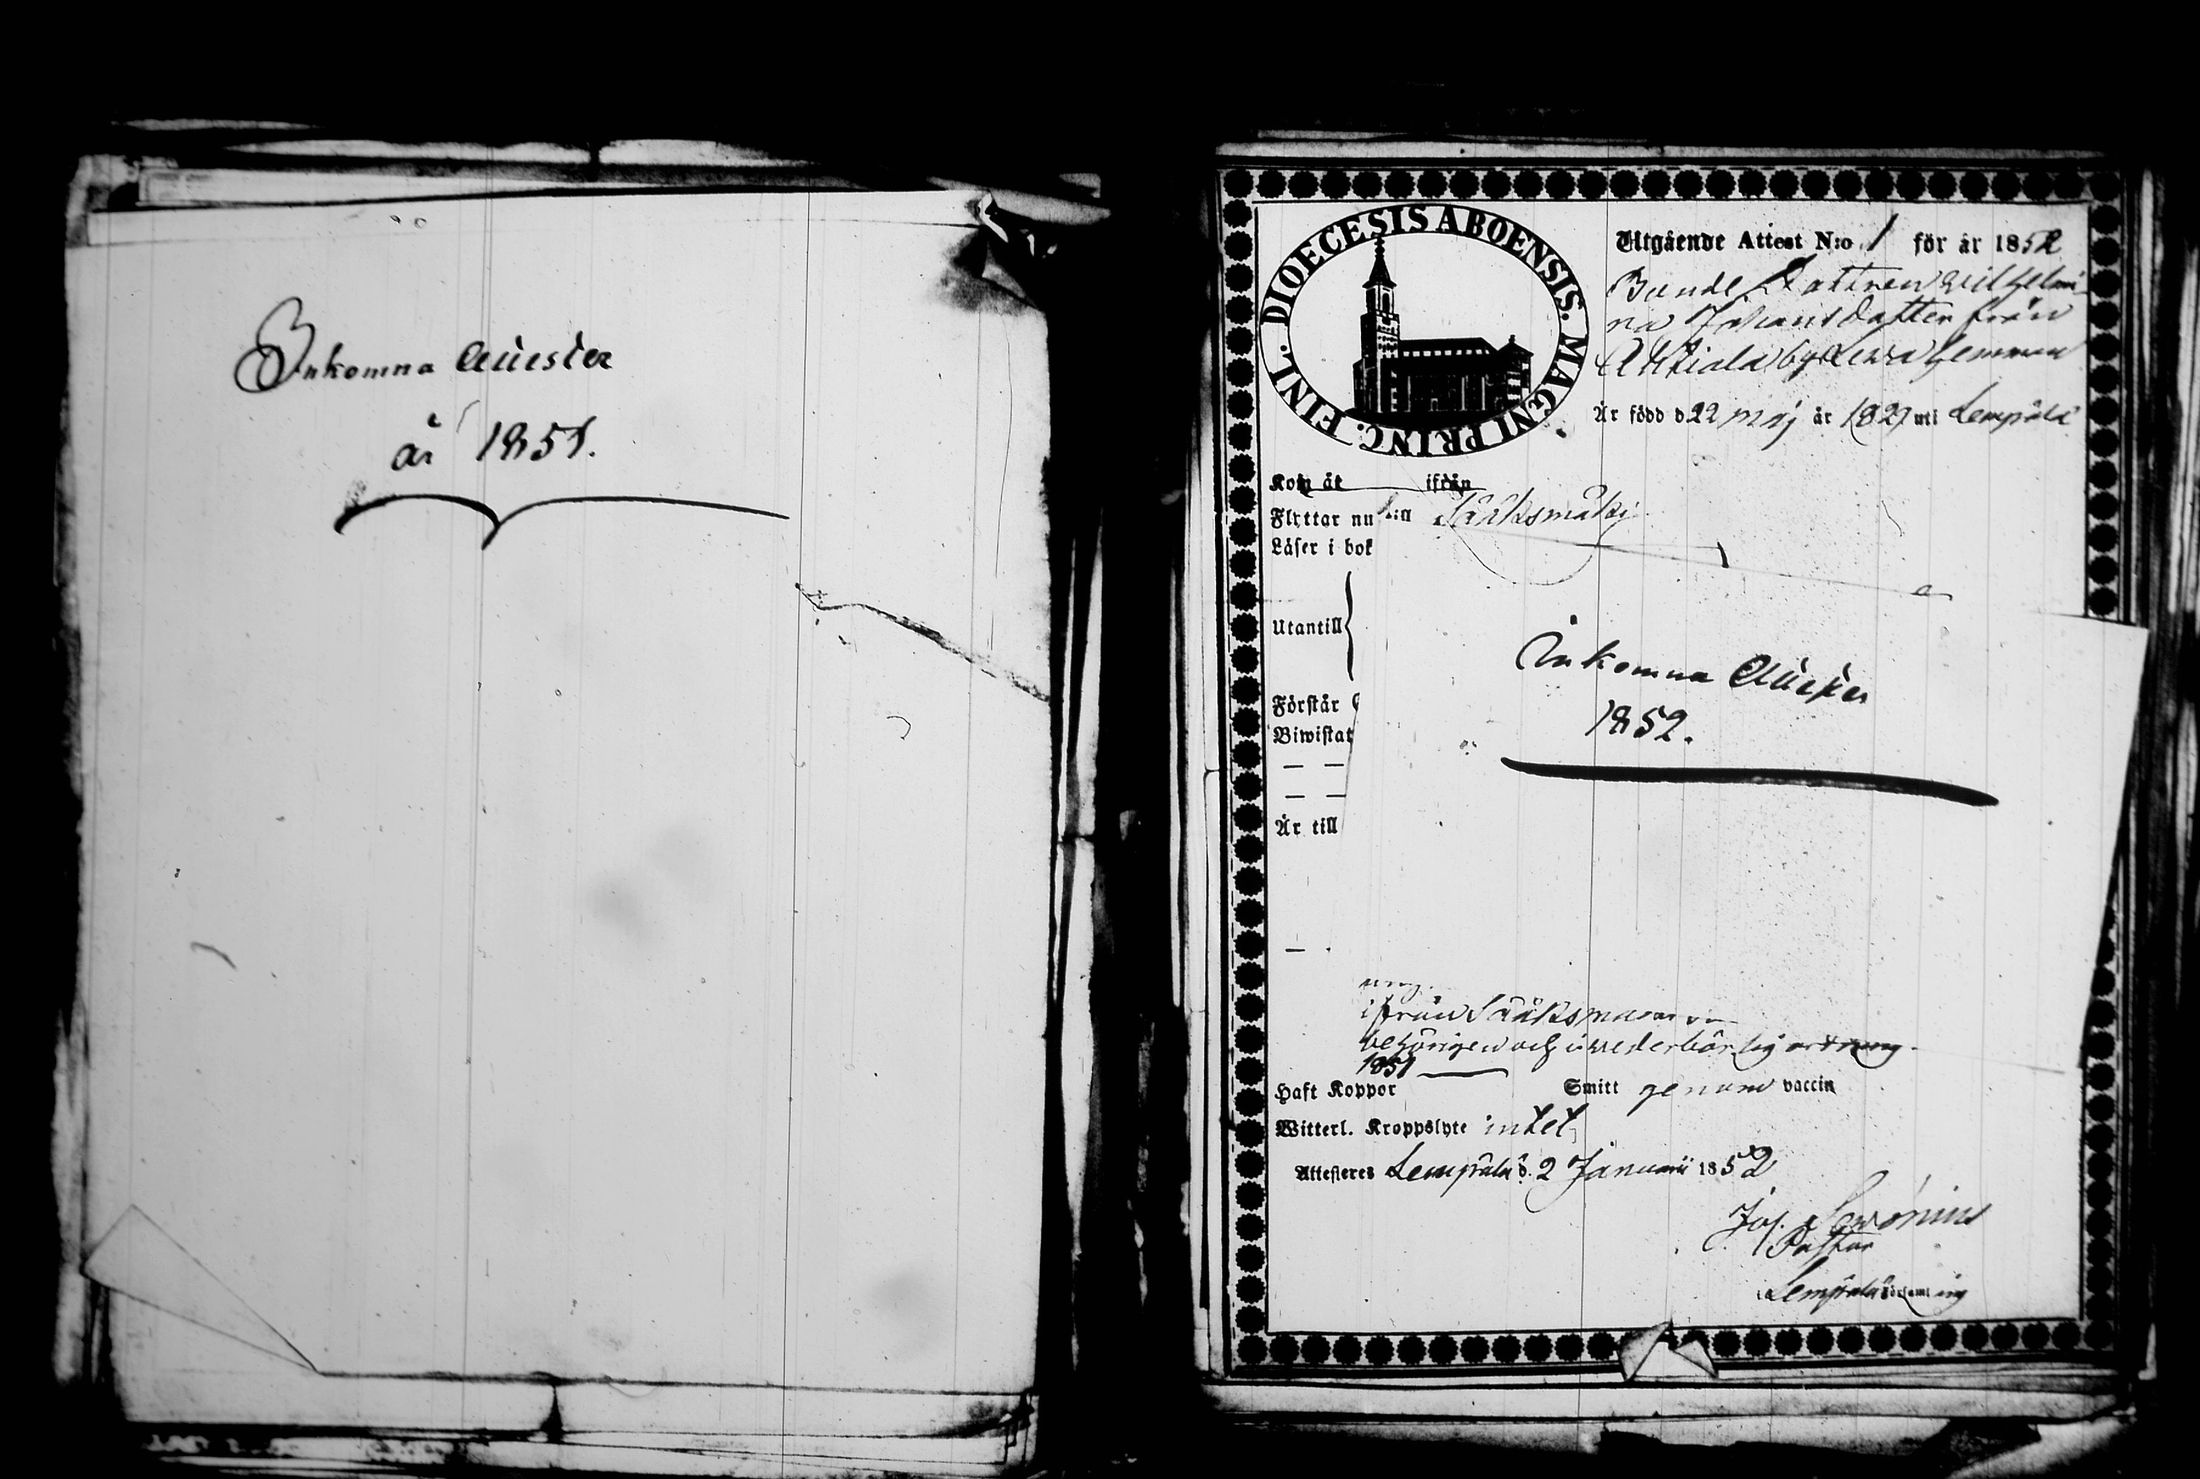 Inkomna Attester
år 1851.
FINL. DIOECESIS ABOENSIS. MAGNI PRINC.
Utgående Attest N:o 1 för år 1852
Bonde Dottren Wilhelmi-
na Johansdotter från
by hemman
Är född d. 22 Maj år 1827 uti Lempälä
Kom år ifrån
Flyttar nu till Sääksmäki
Läser i bok
Utantill
Inkomna Attester
1852.
Förstår
Biwistat
— —
— —
Är till
—
ifrån
behörigen och i wederbörlig ordning.
1851
Haft Koppor Smitt genom vaccin
Witterl. Kroppslyte intet
Attesteras Lempälä d. 2 Januarii 1852
Jos.
Pastor
Lempälä församling